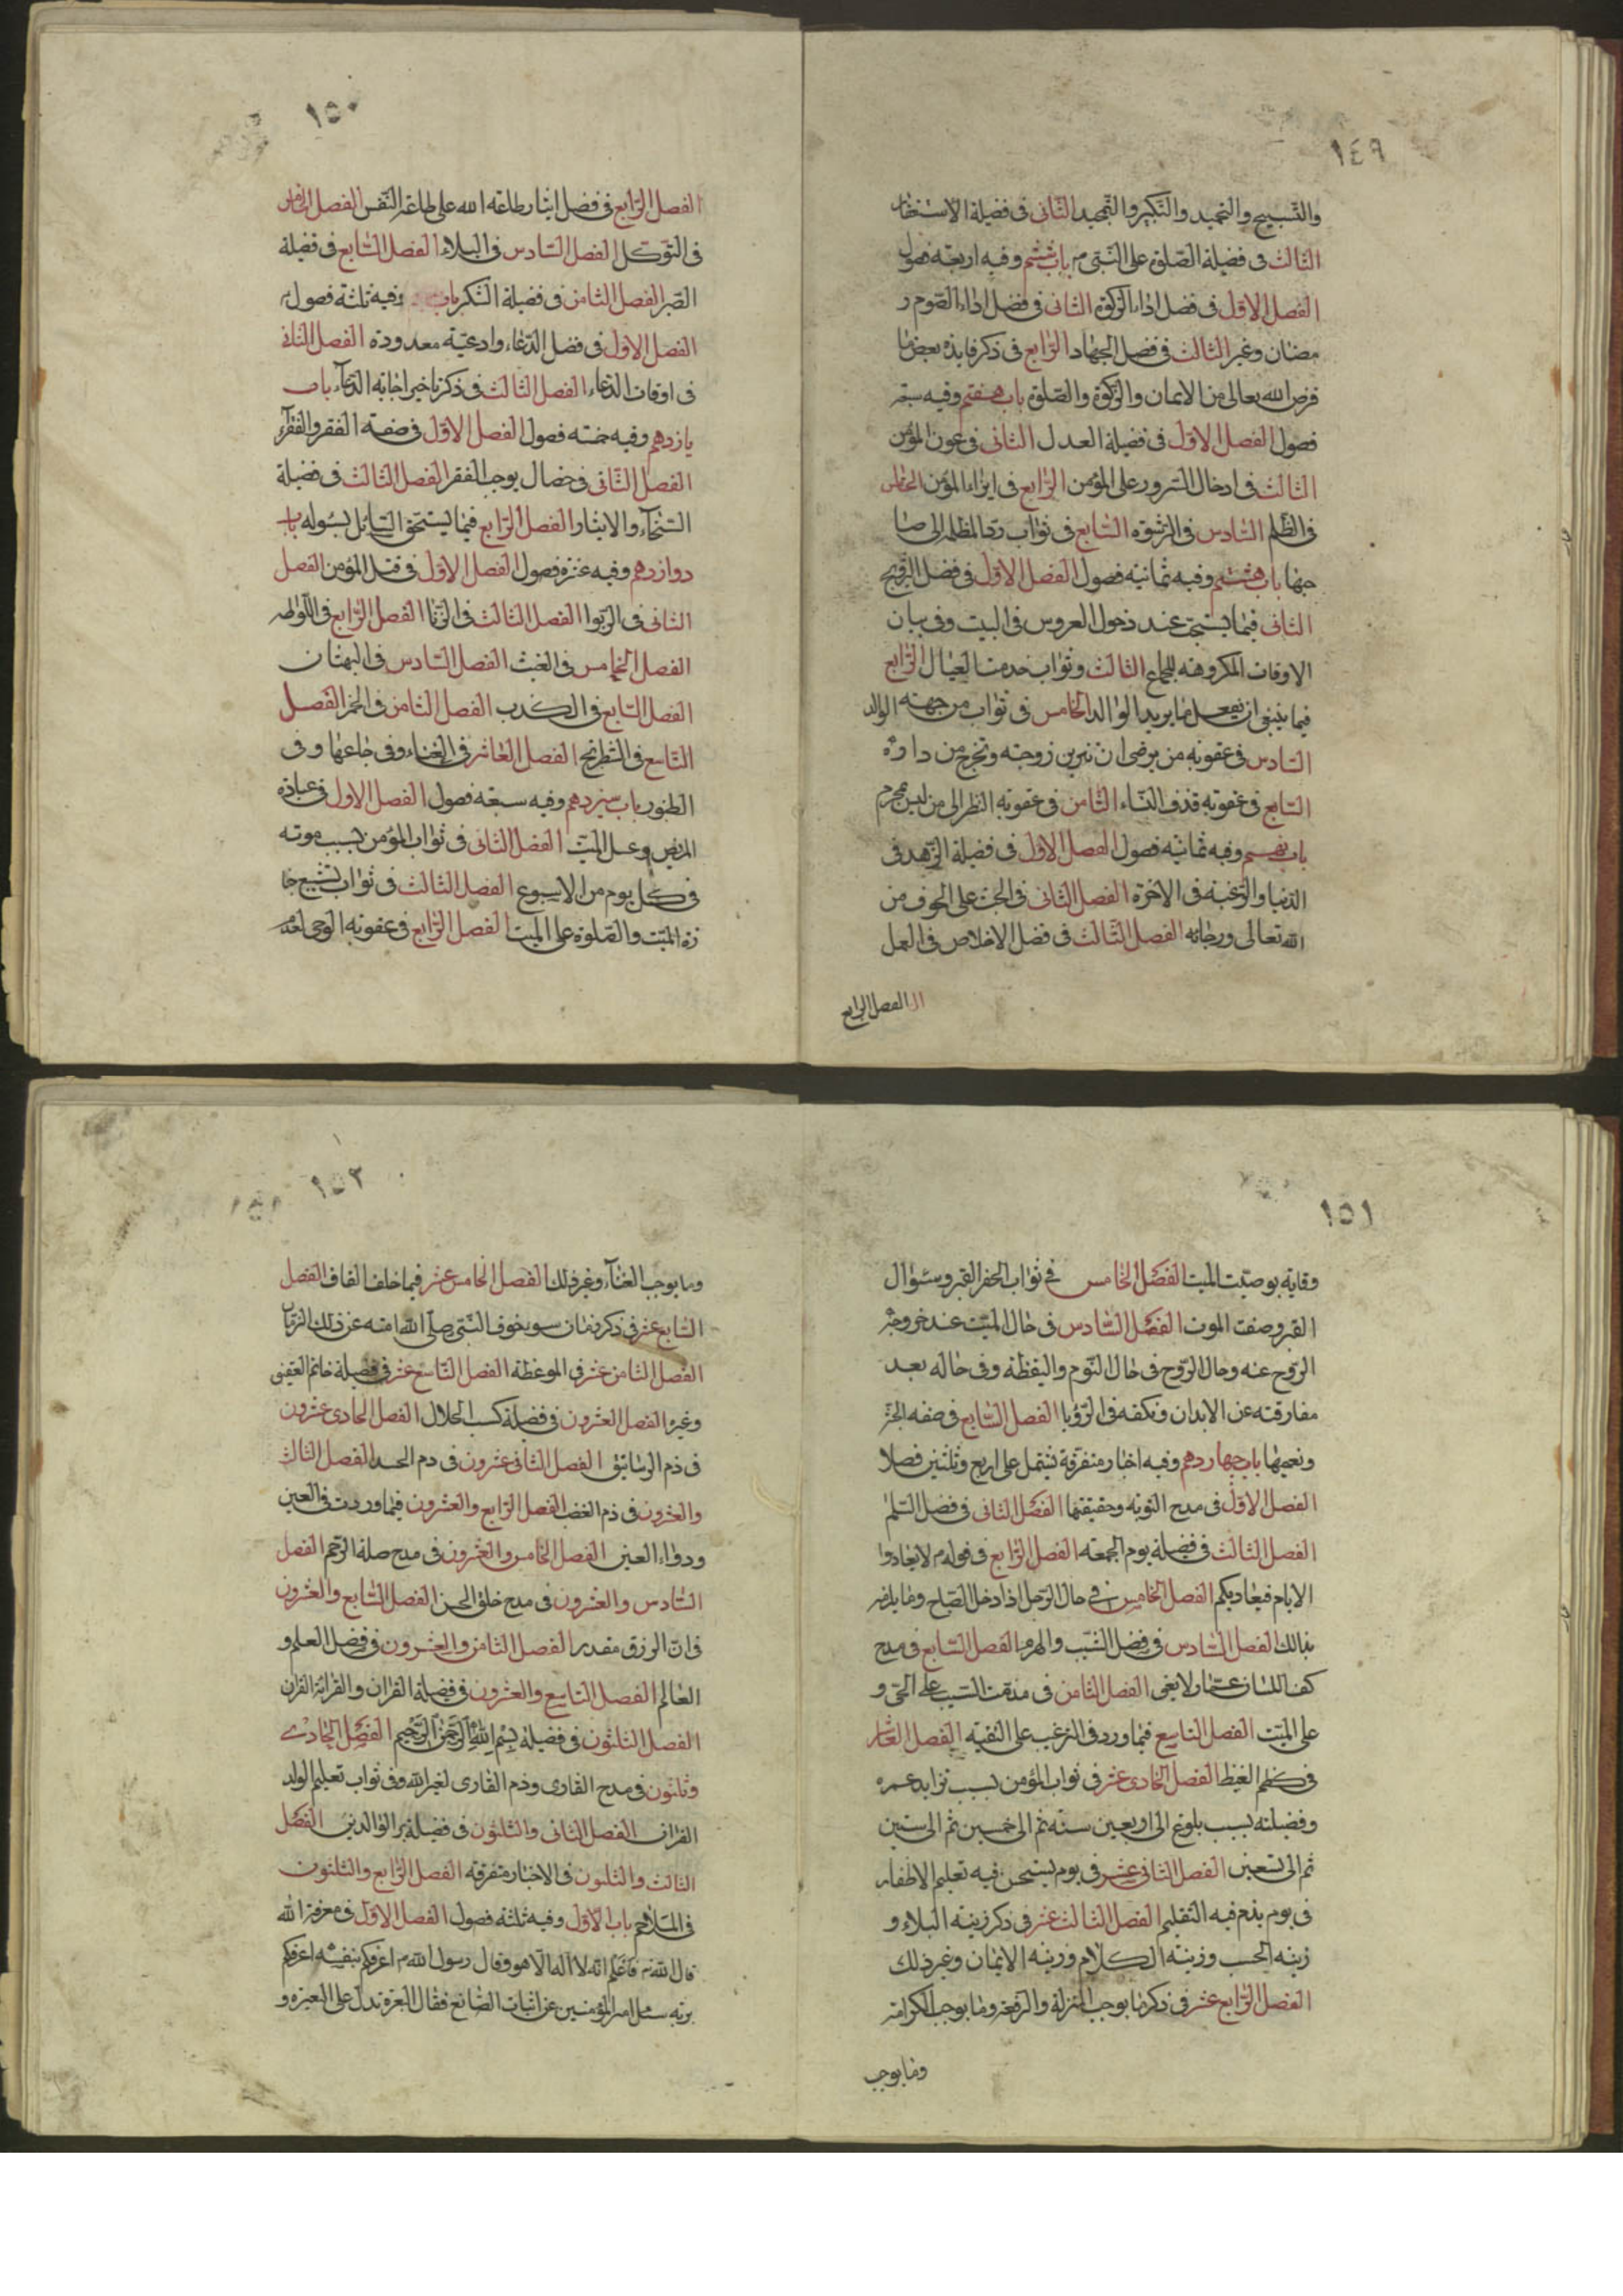 ١٤٩
والتسبيح والتحميد والتكبير والتمجيد الثانى فى فضيلة الاستغفار
الثالث فى فضيلة الصلوة على النبى م باب ششم وفيه اربعة فصول
الفصل الاول فى فضل اداء الزكوة الثانى فى فضل اداء الصوم ر
مضان وغير الثالث فى فضل الجهاد الرابع فى ذكر فايدة بعض ما
فرض الله تعالى من الايمان والزكوة والصلوة باب هفتم وفيه سبعة
فصول الفصل الاول فى فضيلة العدل الثانى فى عون المؤمن
الثالث فى ادخال السرور على المؤمن الرابع فى ايذاء المؤمن الخامس
فى الظلم السادس فى الرشوة السابع فى ثواب رد المظلمة الى صا
حبها باب هشتم وفيه ثمانية فصول الفصل الاول فى فضل التزويج
الثانى فيما يستحق عند دخول العروس فى البيت وفى بيان
الاوقات المكروهة للجماع الثالث وثواب خدمت العيال الرابع
فيما ينبغى ان يفعل ما يريد الوالد الخامس فى ثواب من جهته الوالد
السادس فى عقوبة من يرضى ان تتزين زوجته وتخرج من داره
السابع فى عقوبة قذف النساء الثامن فى عقوبة النظر الى من ليس بمحرم
باب نهم وفيه ثمانية فصول الفصل الاول فى فضيلة الزهد فى
الدنيا والرغبة فى الاخرة الفصل الثانى فى الحث على الخوف من
الله تعالى ورجائه الفصل الثالث فى فضل الاخلاص فى العمل
الفصل الرابع
١٥٠
الفصل الرابع فى فضل ايثار طاعة الله على طاعة النفس الفصل الخامس
فى التوكل الفصل السادس فى البلاء الفصل السابع فى فضيلة
الصبر الفصل الثامن فى فضيلة الشكر باب وفيه ثلثة فصول
الفصل الاول فى فضل الدعاء وادعية معدودة الفصل الثانى
فى اوقات الدعاء الفصل الثالث فى ذكر تاخير اجابة الدعاء باب
يازدهم وفيه خمسة فصول الفصل الاول فى صفة الفقر والفقراء
الفصل الثانى فى خصال يوجب الفقر الفصل الثالث فى فضيلة
السخاء والايثار الفصل الرابع فيما يستحق السايل بسوله باب
دوازدهم وفيه عشرة فصول الفصل الاول فى قتل المؤمن الفصل
الثانى فى الربوا الفصل الثالث فى الزنا الفصل الرابع فى اللواطه
الفصل الخامس فى الغيبت الفصل السادس فى البهتان
الفصل السابع فى الكذب الفصل الثامن فى الخمر الفصل
التاسع فى الشطرنج الفصل العاشر فى الغناء وفى جاعها وفى
الطنبور باب سيزدهم وفيه سبعة فصول الفصل الاول فى عيادة
المريض وغسل الميت الفصل الثانى فى ثواب المؤمن بسبب موته
فى كل يوم من الاسبوع الفصل الثالث فى ثواب تشييع جنا
زة الميت والصلوة على الميت الفصل الرابع فى عقوبة الوصى
١٥١
وقاية بوصيت الميت الفصل الخامس فى ثواب الحفر القبر وسئوال
القبر وصفت الموت الفصل السادس فى حال الميت عند خروج
الروح عنه وحال الروح فى حال النوم واليقظة وفى حاله بعد
مفارقته عن الابدان وتكفه فى الرؤيا الفصل السابع فى صفه الجنة
ونعيمها باب چهاردهم وفيه اخبار متفرقة تشتمل على اربع وثلثين فصلا
الفصل الاول فى مدح التوبة وحقيقتها الفصل الثانى فى فضل السلم
الفصل الثالث فى فضيلة يوم الجمعة الفصل الرابع فى قوله م لا تعادوا
الايام فيعاديكم الفصل الخامس فى حال الرجل اذا دخل الصباح وما يلزمه
بذالك الفصل السادس فى فضل الشيب والهرم الفصل السابع فى مدح
كف اللسان عما لا يعنى الفصل الثامن فى مذمت السب على الحى و
على الميت الفصل التاسع فيما ورد فى الترغيب على التقية الفصل العاشر
فى كظم الغيظ الفصل الحادى عشر فى ثواب المؤمن بسبب تزايد عمره
وفضيلته بسبب بلوغ الى اربعين سنة ثم الى خمسين ثم الى ستين
ثم الى تسعين الفصل الثانى عشر فى يوم يستحق فيه تقليم الاظفار
فى يوم يذم فيه التقليم الفصل الثالث عشر فى ذكر زينه البلاء و
زينه الحسب وزينته الكلام وزينه الايمان وغير ذلك
الفصل الرابع عشر فى ذكر ما يوجب المنزلة والرفعة وما يوجب الكرامة
وما يوجب
١٥٢
وما يوجب الغناء وغير ذلك الفصل الخامس عشر فيما خلف القاف الفصل
السابع عشر فى ذكر زمان سوء يخوف النبى صلى الله امته عن ذلك الزمان
الفصل الثامن عشر فى الموعظة الفصل التاسع عشر فى فضيلة خاتم العقيق
وغيره الفصل العشرون فى فضيلة كسب الحلال الفصل الحادى عشرون
فى ذم الرساتيق الفصل الثانى عشرون فى ذم الحسد الفصل الثالث
والعشرون فى ذم الغضب الفصل الرابع والعشرون فيما وردت فى العين
ودواء العين الفصل الخامس والعشرون فى مدح صلة الرحم الفصل
السادس والعشرون فى مدح خلق الحسن الفصل السابع والعشرون
فى ان الرزق مقدر الفصل الثامن والعشرون فى فضل العلم و
العالم الفصل التاسع والعشرون فى فضيلة القران والقرائة القران
الفصل الثلثون فى فضيلة بسم الله الرحمن الرحيم الفصل الحادى
وثلثون فى مدح القارى وذم القارى لغير الله وفى ثواب تعليم الولد
القران الفصل الثانى والثلثون فى فضيلة بر الوالدين الفصل
الثالث والثلثون فى الاخبار متفرقه الفصل الرابع والثلثون
فى الملاحم باب الاول وفيه ثلثة فصول الفصل الاول فى معرفة الله
قال الله تع فاعلم انه لا اله الا هو وقال رسول الله م اعرفكم بنفسه اعرفكم
بربه سئل امير المؤمنين عن اثبات الصانع فقال البعرة تدل على البعير و